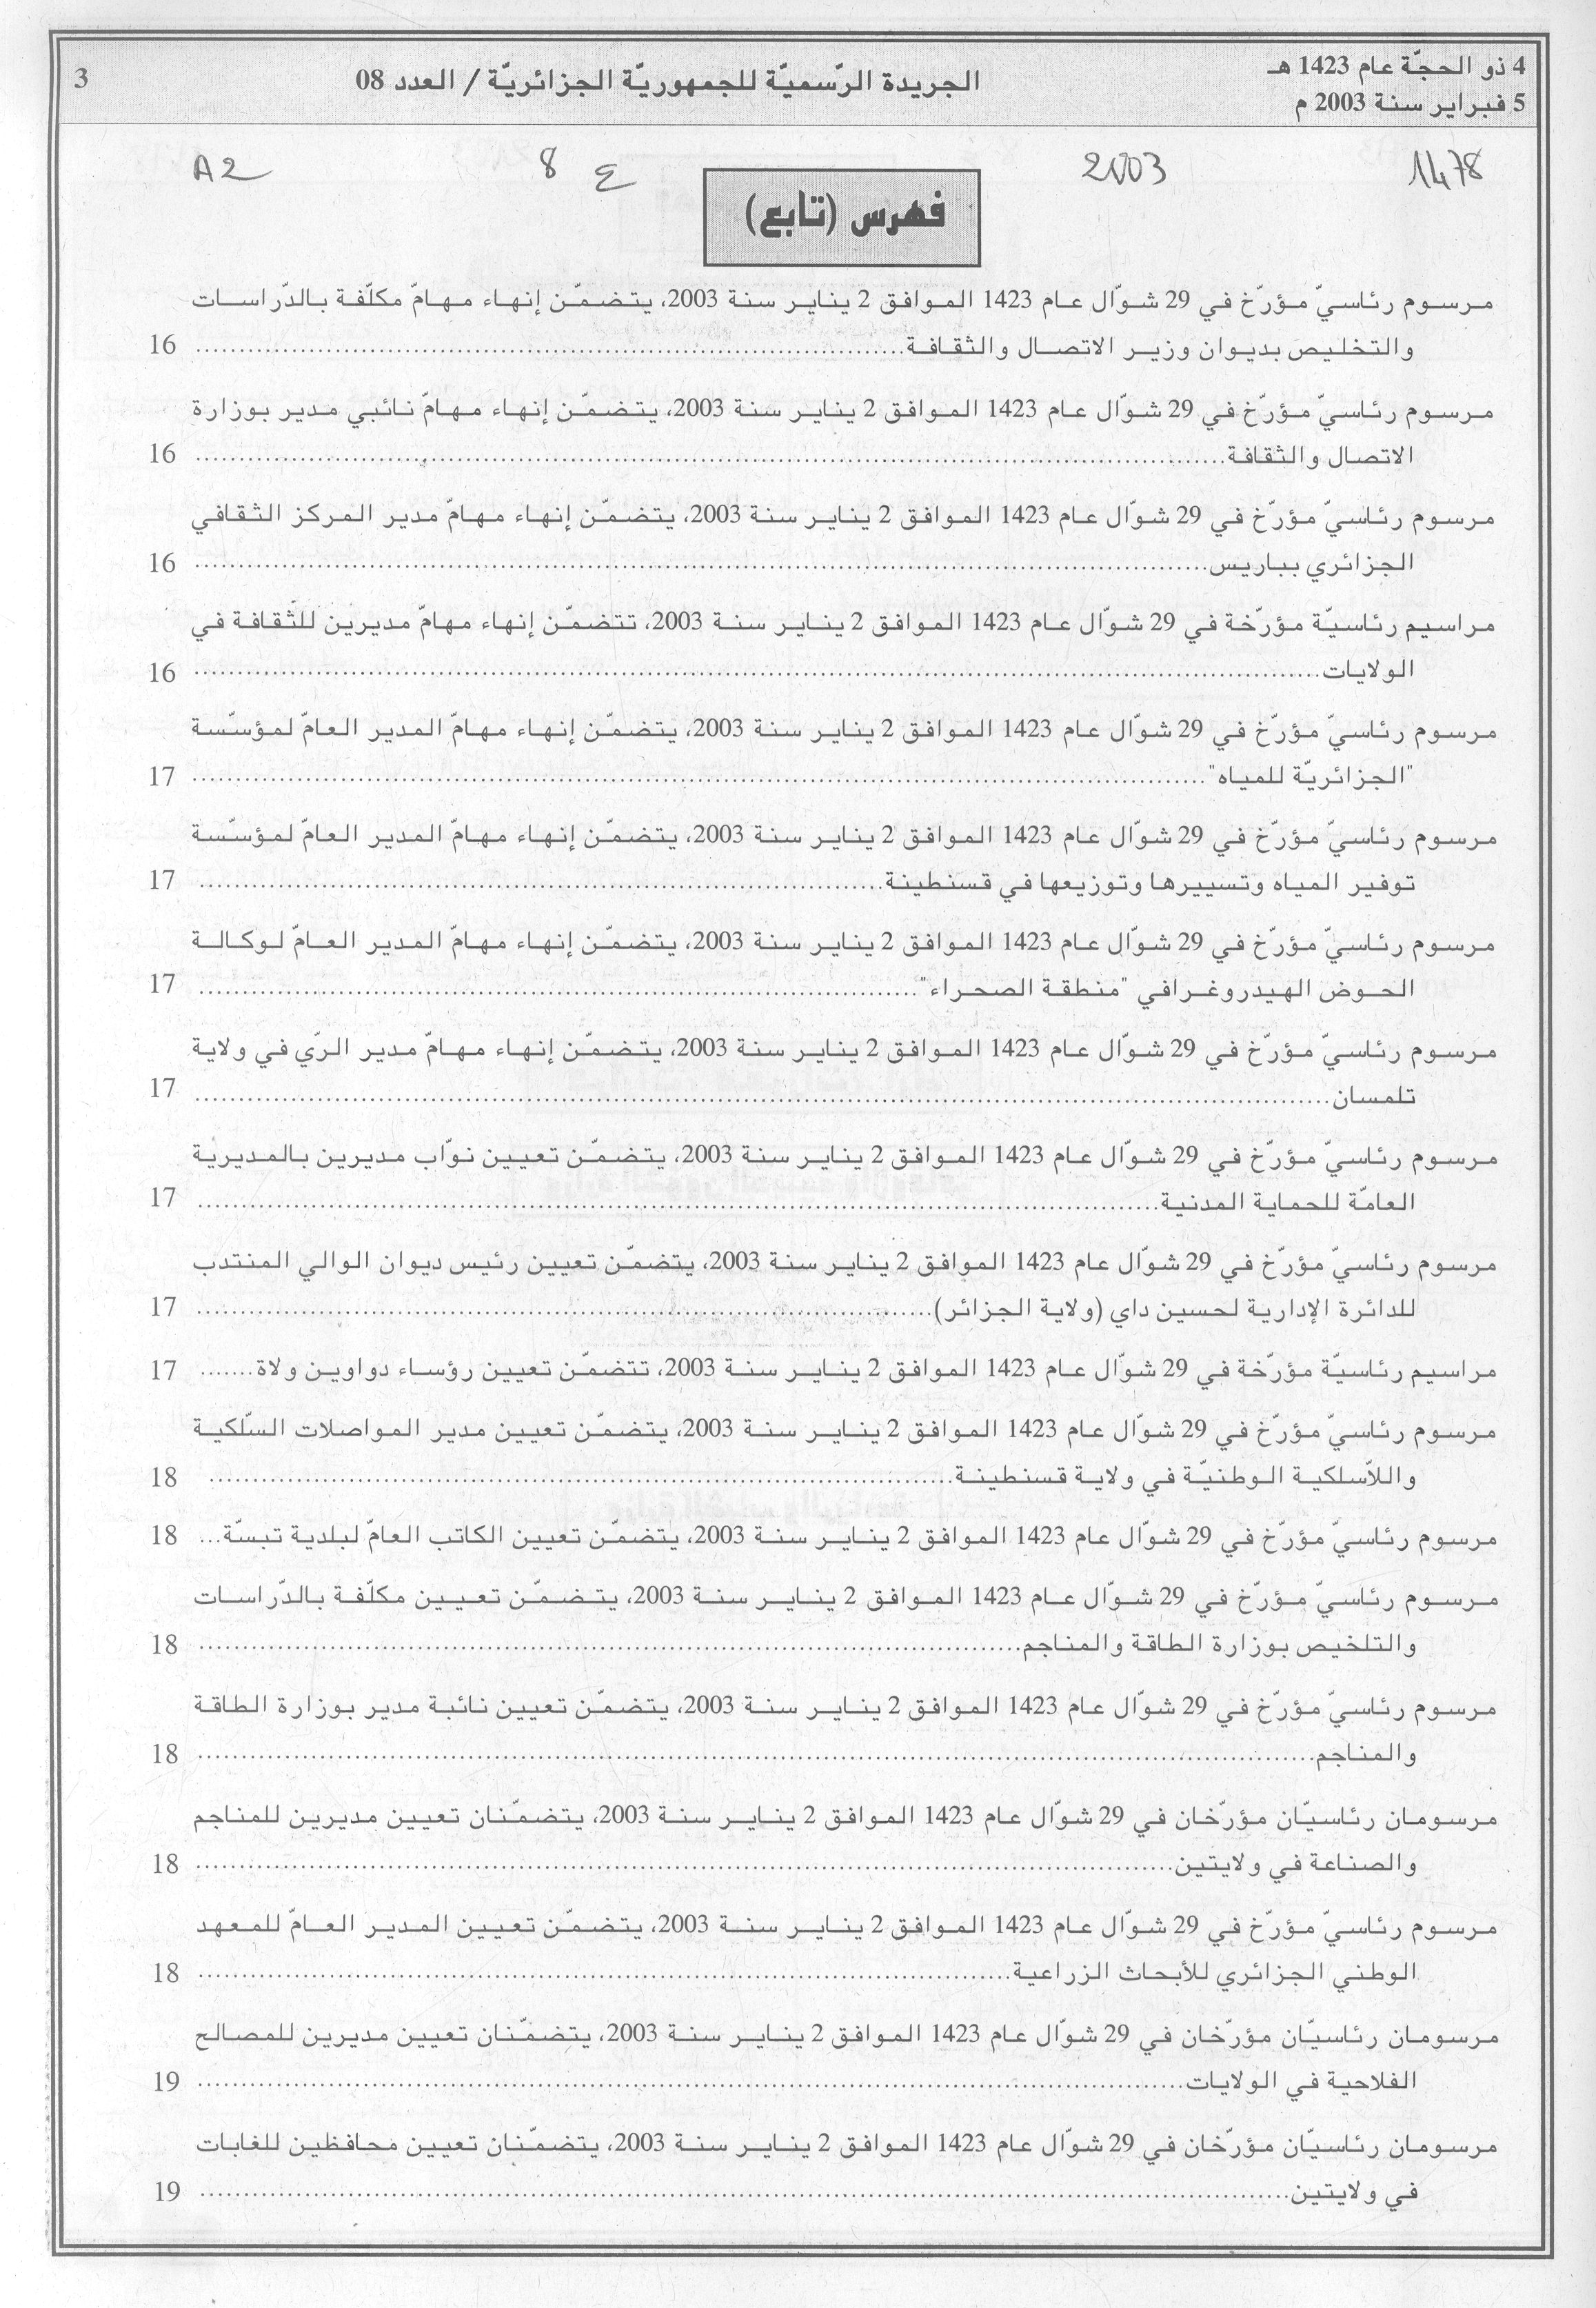 4 ذو الحجّة عام 1423 هـ
5 فبراير سنة 2003 م
الجريدة الرّسميّة للجمهوريّة الجزائريّة / العدد 08
3
1478 2003 ع 8 A2
فهرس (تابع)
مرسوم رئاسيّ مؤرّخ في 29 شوّال عام 1423 الموافق 2 يناير سنة 2003، يتضمّن إنهاء مهامّ مكلّفة بالدّراسات
والتخليص بديوان وزير الاتصال والثقافة........ 16
مرسوم رئاسيّ مؤرّخ في 29 شوّال عام 1423 الموافق 2 يناير سنة 2003، يتضمّن إنهاء مهامّ نائبي مدير بوزارة
الاتصال والثقافة........ 16
مرسوم رئاسيّ مؤرّخ في 29 شوّال عام 1423 الموافق 2 يناير سنة 2003، يتضمّن إنهاء مهامّ مدير المركز الثقافي
الجزائري بباريس........ 16
مراسيم رئاسيّة مؤرّخة في 29 شوّال عام 1423 الموافق 2 يناير سنة 2003، تتضمّن إنهاء مهامّ مديرين للثّقافة في
الولايات........ 16
مرسوم رئاسيّ مؤرّخ في 29 شوّال عام 1423 الموافق 2 يناير سنة 2003، يتضمّن إنهاء مهامّ المدير العامّ لمؤسّسة
"الجزائريّة للمياه"........ 17
مرسوم رئاسيّ مؤرّخ في 29 شوّال عام 1423 الموافق 2 يناير سنة 2003، يتضمّن إنهاء مهامّ المدير العامّ لمؤسّسة
توفير المياه وتسييرها وتوزيعها في قسنطينة........ 17
مرسوم رئاسيّ مؤرّخ في 29 شوّال عام 1423 الموافق 2 يناير سنة 2003، يتضمّن إنهاء مهامّ المدير العامّ لوكالة
الحوض الهيدروغرافي "منطقة الصحراء"........ 17
مرسوم رئاسيّ مؤرّخ في 29 شوّال عام 1423 الموافق 2 يناير سنة 2003، يتضمّن إنهاء مهامّ مدير الرّي في ولاية
تلمسان........ 17
مرسوم رئاسيّ مؤرّخ في 29 شوّال عام 1423 الموافق 2 يناير سنة 2003، يتضمّن تعيين نوّاب مديرين بالمديرية
العامّة للحماية المدنية........ 17
مرسوم رئاسيّ مؤرّخ في 29 شوّال عام 1423 الموافق 2 يناير سنة 2003، يتضمّن تعيين رئيس ديوان الوالي المنتدب
للدائرة الإدارية لحسين داي (ولاية الجزائر)........ 17
مراسيم رئاسيّة مؤرّخة في 29 شوّال عام 1423 الموافق 2 يناير سنة 2003، تتضمّن تعيين رؤساء دواوين ولاة....... 17
مرسوم رئاسيّ مؤرّخ في 29 شوّال عام 1423 الموافق 2 يناير سنة 2003، يتضمّن تعيين مدير المواصلات السّلكية
واللاّسلكية الوطنيّة في ولاية قسنطينة........ 18
مرسوم رئاسيّ مؤرّخ في 29 شوّال عام 1423 الموافق 2 يناير سنة 2003، يتضمّن تعيين الكاتب العامّ لبلدية تبسّة... 18
مرسوم رئاسيّ مؤرّخ في 29 شوّال عام 1423 الموافق 2 يناير سنة 2003، يتضمّن تعيين مكلّفة بالدّراسات
والتلخيص بوزارة الطاقة والمناجم........ 18
مرسوم رئاسيّ مؤرّخ في 29 شوّال عام 1423 الموافق 2 يناير سنة 2003، يتضمّن تعيين نائبة مدير بوزارة الطاقة
والمناجم........ 18
مرسومان رئاسيّان مؤرّخان في 29 شوّال عام 1423 الموافق 2 يناير سنة 2003، يتضمّنان تعيين مديرين للمناجم
والصناعة في ولايتين........ 18
مرسوم رئاسيّ مؤرّخ في 29 شوّال عام 1423 الموافق 2 يناير سنة 2003، يتضمّن تعيين المدير العامّ للمعهد
الوطني الجزائري للأبحاث الزراعية........ 18
مرسومان رئاسيّان مؤرّخان في 29 شوّال عام 1423 الموافق 2 يناير سنة 2003، يتضمّنان تعيين مديرين للمصالح
الفلاحية في الولايات........ 19
مرسومان رئاسيّان مؤرّخان في 29 شوّال عام 1423 الموافق 2 يناير سنة 2003، يتضمّنان تعيين محافظين للغابات
في ولايتين........ 19